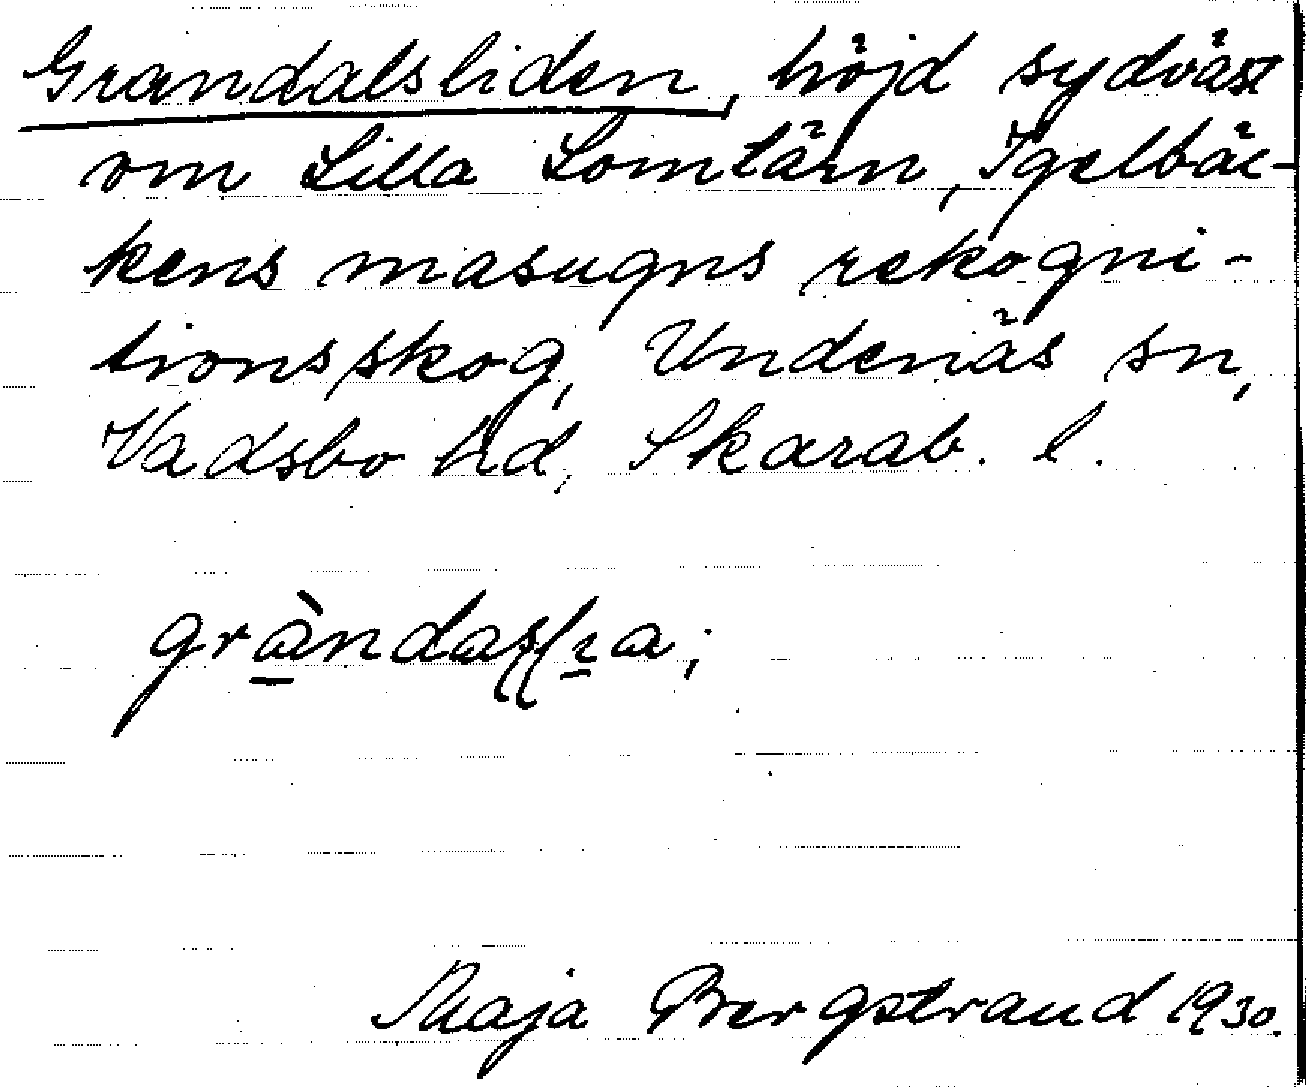 Grandalsliden, höjd sydväst
om Lilla Lomtärn, Igelbäc-
kens masugns rekogni-
tionsskog, Undenäs sn,
Vadsbo hd, Skarab. l.
Maja Bergstrand 1930.